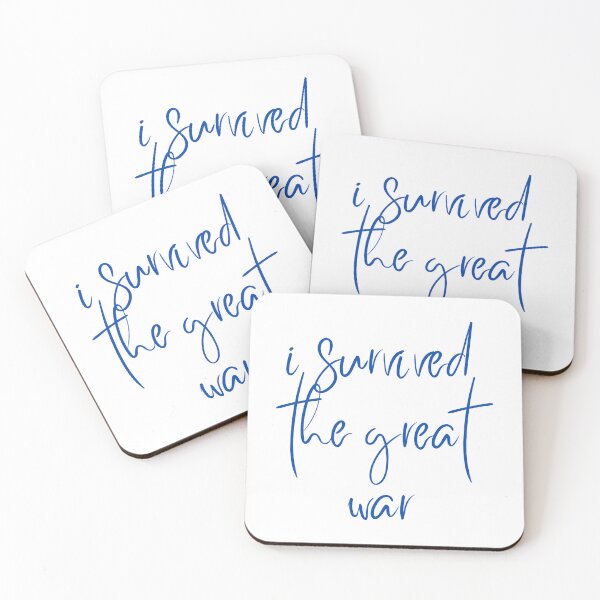 i survived
the
i survived
the great
i survived
the great
war
i survived
the great
war